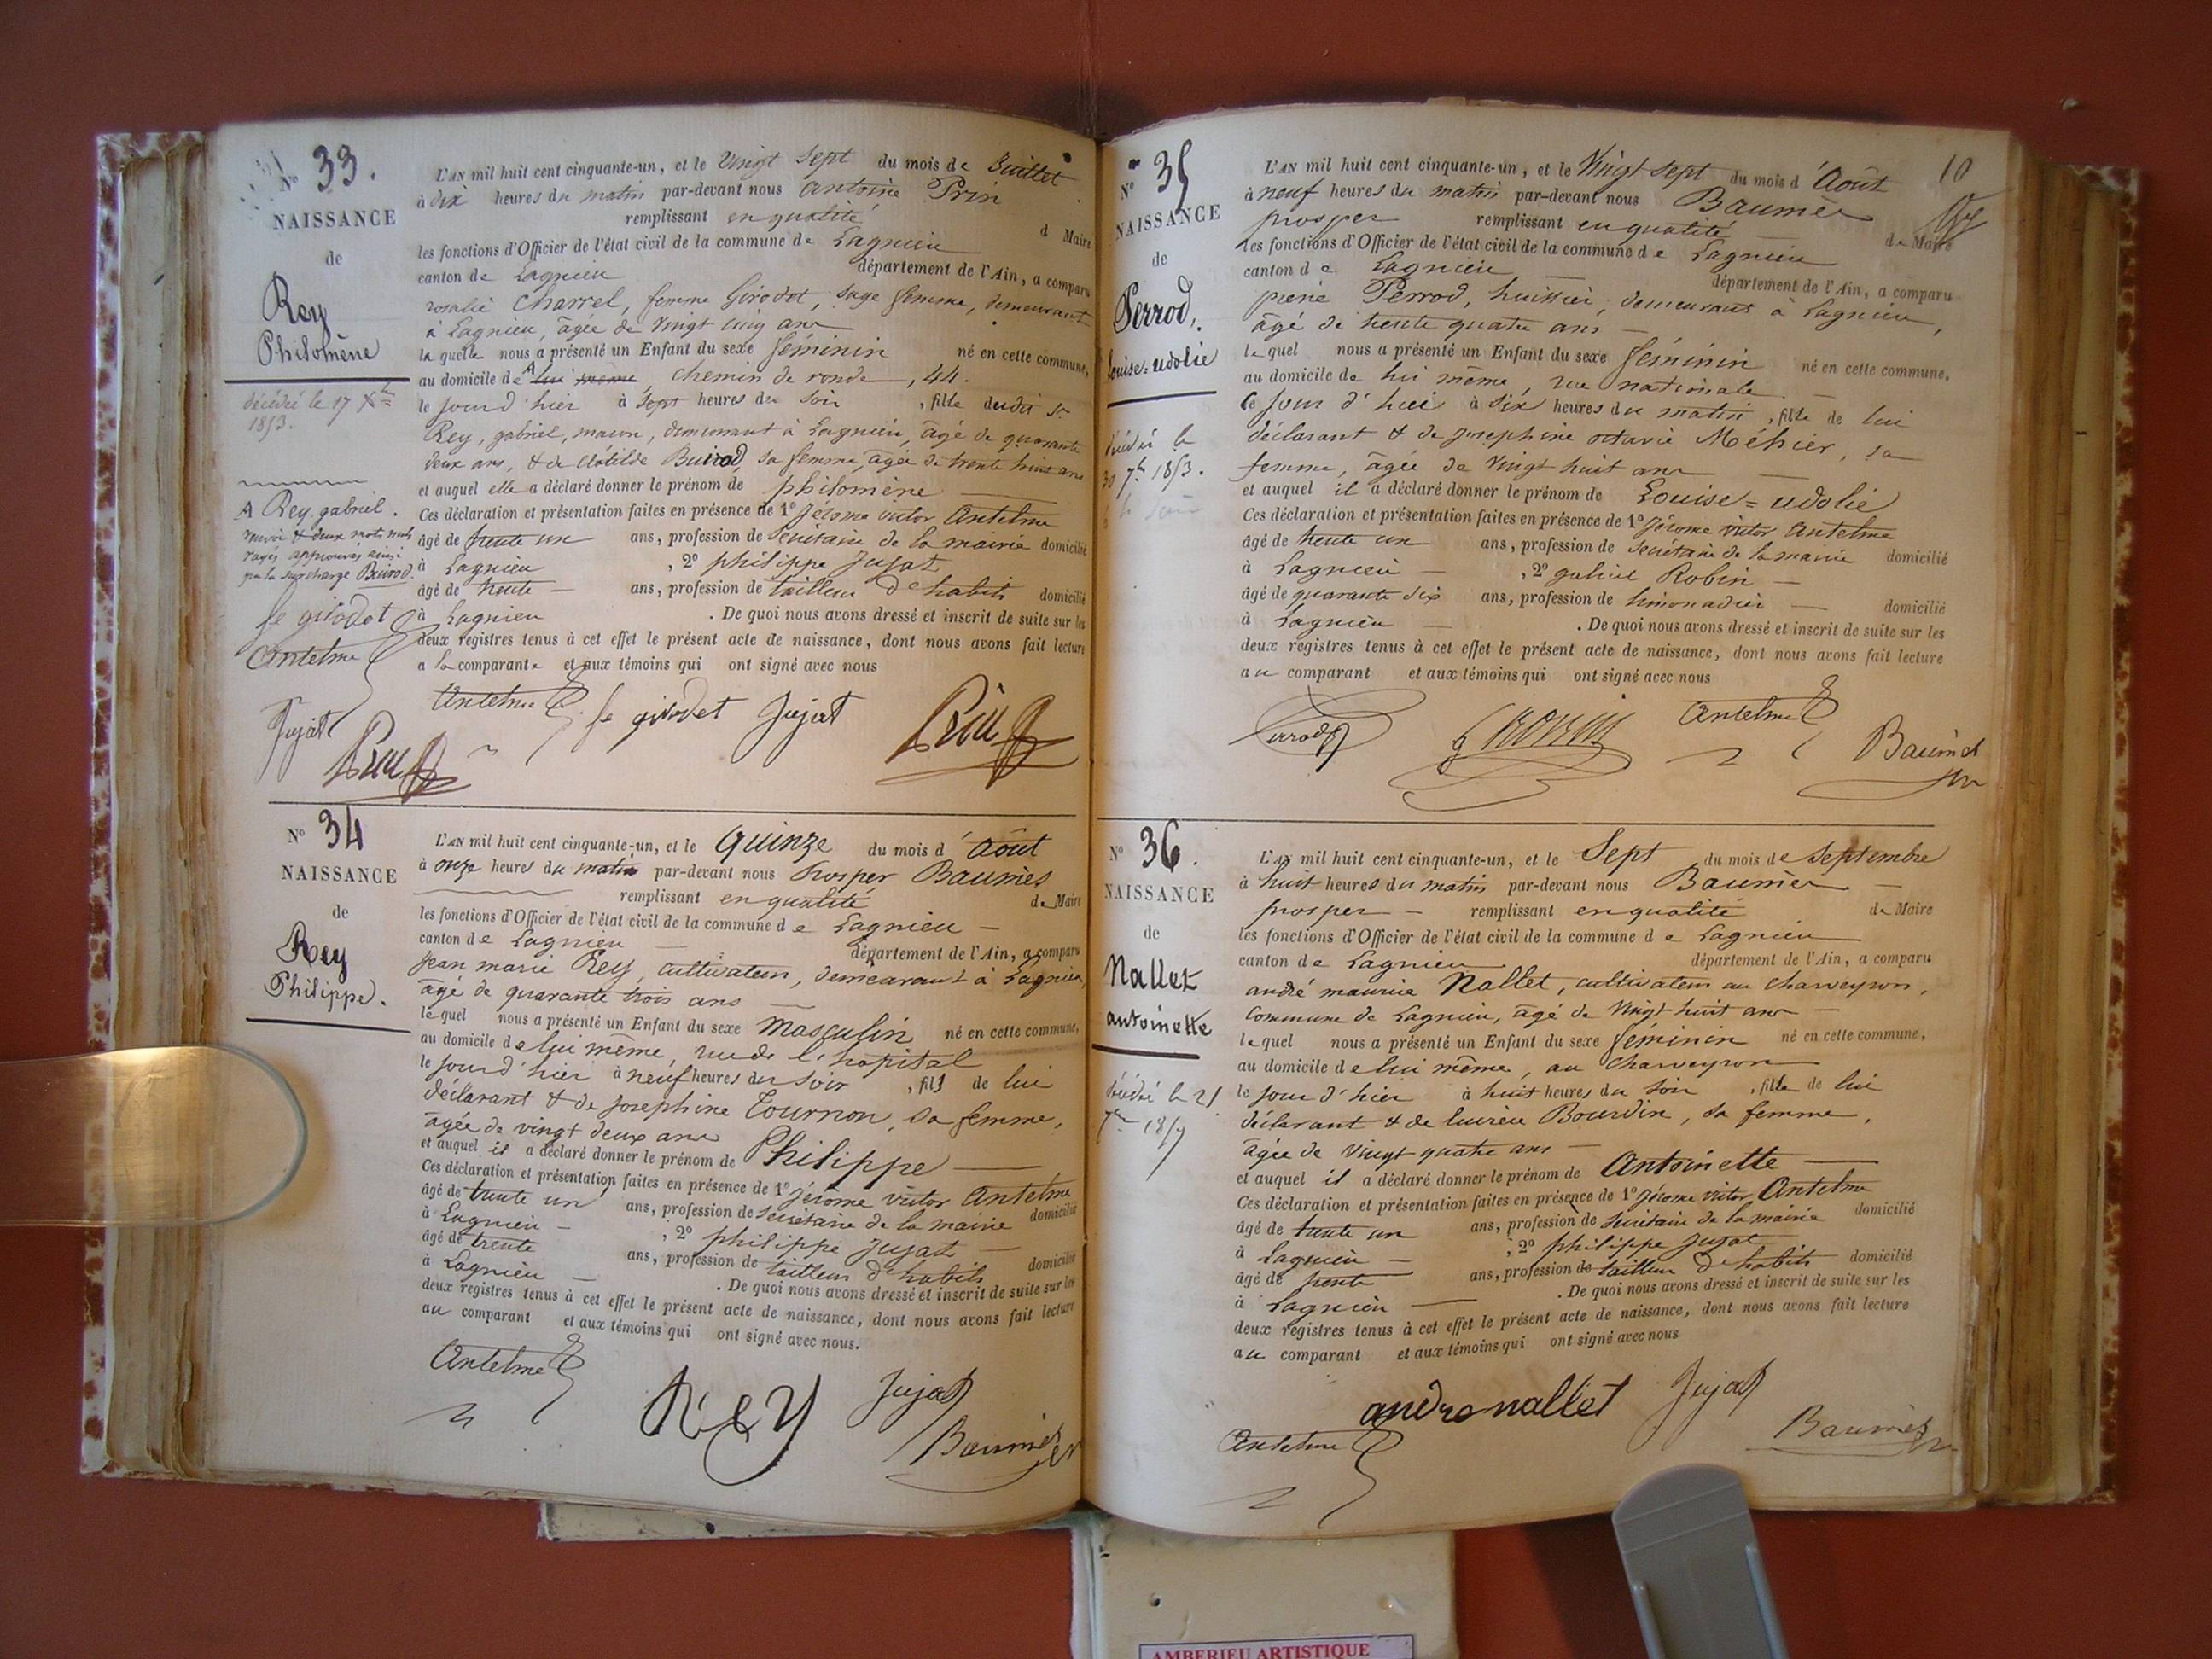 N° 33.
NAISSANCE
de
Rey
Philomène
décédé le 17 Xbre
1853.
A Rey, gabriel.
renvoi & deux mots nuls
rayés approuvés ainsi
que la surcharge Buirod.
fe girodet
Antelme
Jujat
Prin
L'AN mil huit cent cinquante-un, et le Vingt Sept du mois de Juillet
à dix heures du matin par-devant nous antoine Prin
remplissant en qualité d Maire
les fonctions d'Officier de l'état civil de la commune de Lagnieu
canton de Lagnieu département de l'Ain, a comparu
rosalie Charrel, femme Girodet, sage femme, demeurant
à Lagnieu, âgée de Vingt cinq ans
laquelle nous a présenté un Enfant du sexe féminin né en cette commune,
au domicile de A lui même, chemin de ronde, 44.
le jour d'hier à Sept heures du soir, fille dudit Sr
Rey, gabriel, maçon, demeurant à Lagnieu, âgé de quarante
deux ans, & de Clotilde Buirod, sa femme, âgée de trente trois ans
et auquel elle a déclaré donner le prénom de philomène
Ces déclaration et présentation faites en présence de 1° jérome victor Antelme
âgé de trente un ans, profession de Secrétaire de la mairie domicilié
à Lagnieu, 2° philippe Jujat
âgé de trente ans, profession de tailleur d'habits domicilié
à Lagnieu. De quoi nous avons dressé et inscrit de suite sur les
deux registres tenus à cet effet le présent acte de naissance, dont nous avons fait lecture
a la comparante et aux témoins qui ont signé avec nous
Antelme fe girodet Jujat Prin
N° 34
NAISSANCE
de
Rey
Philippe.
L'AN mil huit cent cinquante-un, et le Quinze du mois d'Août
à onze heures du matin par-devant nous Prosper Baumès
remplissant en qualité de Maire
les fonctions d'Officier de l'état civil de la commune de Lagnieu
canton de Lagnieu département de l'Ain, a comparu
Jean marie Rey, cultivateur, demeurant à Lagnieu,
âgé de quarante trois ans
lequel nous a présenté un Enfant du sexe Masculin né en cette commune,
au domicile de lui même, rue de l'hopital
le jour d'hier à neuf heures du soir, fils de lui
déclarant & de Josephine Tournon, sa femme,
âgée de vingt deux ans
et auquel il a déclaré donner le prénom de Philippe
Ces déclaration et présentation faites en présence de 1° jérome victor Antelme
âgé de trente un ans, profession de secrétaire de la mairie domicilié
à Lagnieu, 2° philippe Jujat
âgé de trente ans, profession de tailleur d'habits domicilié
à Lagnieu. De quoi nous avons dressé et inscrit de suite sur les
deux registres tenus à cet effet le présent acte de naissance, dont nous avons fait lecture
au comparant et aux témoins qui ont signé avec nous.
Antelme Rey Jujat
Baumès
10
N° 35
NAISSANCE
de
Perrod,
Louise=udolie
décédé le
30 7b 1853.
L'AN mil huit cent cinquante-un, et le Vingt Sept du mois d'Août
à neuf heures du matin par-devant nous Baumès
prosper remplissant en qualité de Maire
les fonctions d'Officier de l'état civil de la commune de Lagnieu
canton de Lagnieu département de l'Ain, a comparu
pierre Perrod, huissier, demeurant à Lagnieu,
âgé de trente quatre ans
lequel nous a présenté un Enfant du sexe féminin né en cette commune,
au domicile de lui même, rue nationale
le jour d'hier à six heures du matin, fille de lui
déclarant & de Josephine octavie Méhier, sa
femme, âgée de Vingt huit ans
et auquel il a déclaré donner le prénom de Louise=udolie
Ces déclaration et présentation faites en présence de 1° jérome victor Antelme
âgé de trente un ans, profession de Secrétaire de la mairie domicilié
à Lagnieu, 2° gabriel Robin
âgé de quarante six ans, profession de limonadier domicilié
à Lagnieu. De quoi nous avons dressé et inscrit de suite sur les
deux registres tenus à cet effet le présent acte de naissance, dont nous avons fait lecture
au comparant et aux témoins qui ont signé avec nous
Perrod Antelme
Baumès
N° 36.
NAISSANCE
de
Nallet
antoinette
décédé le 21
L'AN mil huit cent cinquante-un, et le Sept du mois de Septembre
à huit heures du matin par-devant nous Baumès
prosper remplissant en qualité de Maire
les fonctions d'Officier de l'état civil de la commune de Lagnieu
canton de Lagnieu département de l'Ain, a comparu
andré maurice Nallet, cultivateur au charveyron,
commune de Lagnieu, âgé de Vingt huit ans
lequel nous a présenté un Enfant du sexe féminin né en cette commune,
au domicile de lui même, au Charveyron
le jour d'hier à huit heures du soir, fille de lui
déclarant & de Bourdin, sa femme,
âgée de Vingt quatre ans
et auquel il a déclaré donner le prénom de Antoinette
Ces déclaration et présentation faites en présence de 1° jérome victor Antelme
âgé de trente un ans, profession de Secrétaire de la mairie domicilié
à Lagnieu, 2° philippe Jujat
âgé de trente ans, profession de tailleur d'habits domicilié
à Lagnieu. De quoi nous avons dressé et inscrit de suite sur les
deux registres tenus à cet effet le présent acte de naissance, dont nous avons fait lecture
au comparant et aux témoins qui ont signé avec nous
andre nallet Jujat
Antelme Baumès
AMBERIEU ARTISTIQUE